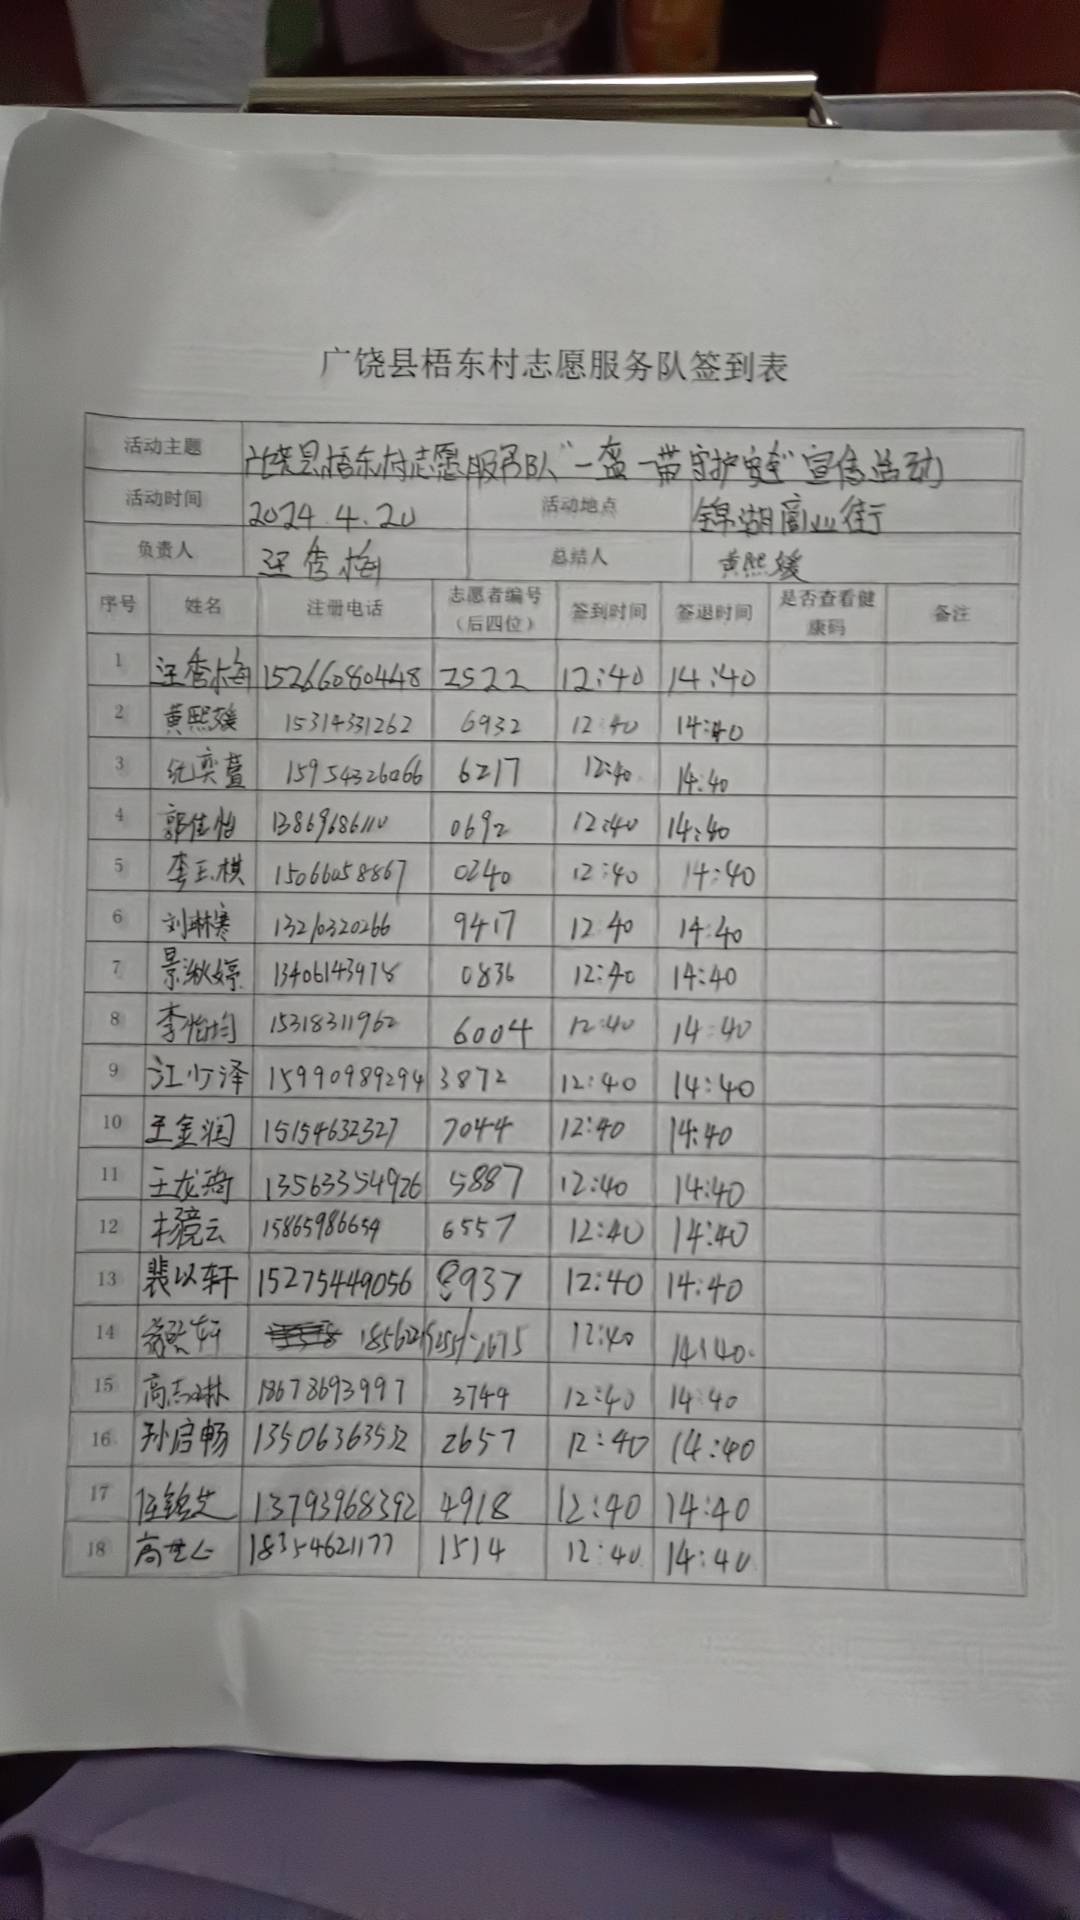 广饶县梧东村志愿服务队签到表
活动主题 广饶县梧东村志愿服务队"一盔一带 守护安全"宣传活动
活动时间 2024.4.20 活动地点 锦湖商业街
负责人 汪秀梅 总结人 黄熙媛
序号 姓名 注册电话 志愿者编号（后四位） 签到时间 签退时间 是否查看健康码 备注
1 汪秀梅 15266080448 2522 12:40 14:40
2 黄熙媛 15314331262 6932 12:40 14:40
3 奕萱 15954326066 6217 12:40 14:40
4 郭佳怡 13869686110 0692 12:40 14:40
5 李玉棋 15066058867 0240 12:40 14:40
6 刘琳寒 13210320266 9417 12:40 14:40
7 景湫婷 13406143978 0836 12:40 14:40
8 李怡均 15318311962 6004 12:40 14:40
9 江少泽 15990989294 3872 12:40 14:40
10 王金润 15154632327 7044 12:40 14:40
11 王龙琦 13563354926 5887 12:40 14:40
12 杨镜云 15865986659 6557 12:40 14:40
13 裴以轩 15275449056 8937 12:40 14:40
14 轩 12:40 14:40.
15 高志琳 18678693997 3749 12:40 14:40
16 孙启畅 13506363532 2657 12:40 14:40
17 伍铭 13793968392 4918 12:40 14:40
18 高世 18354621177 1514 12:40 14:40